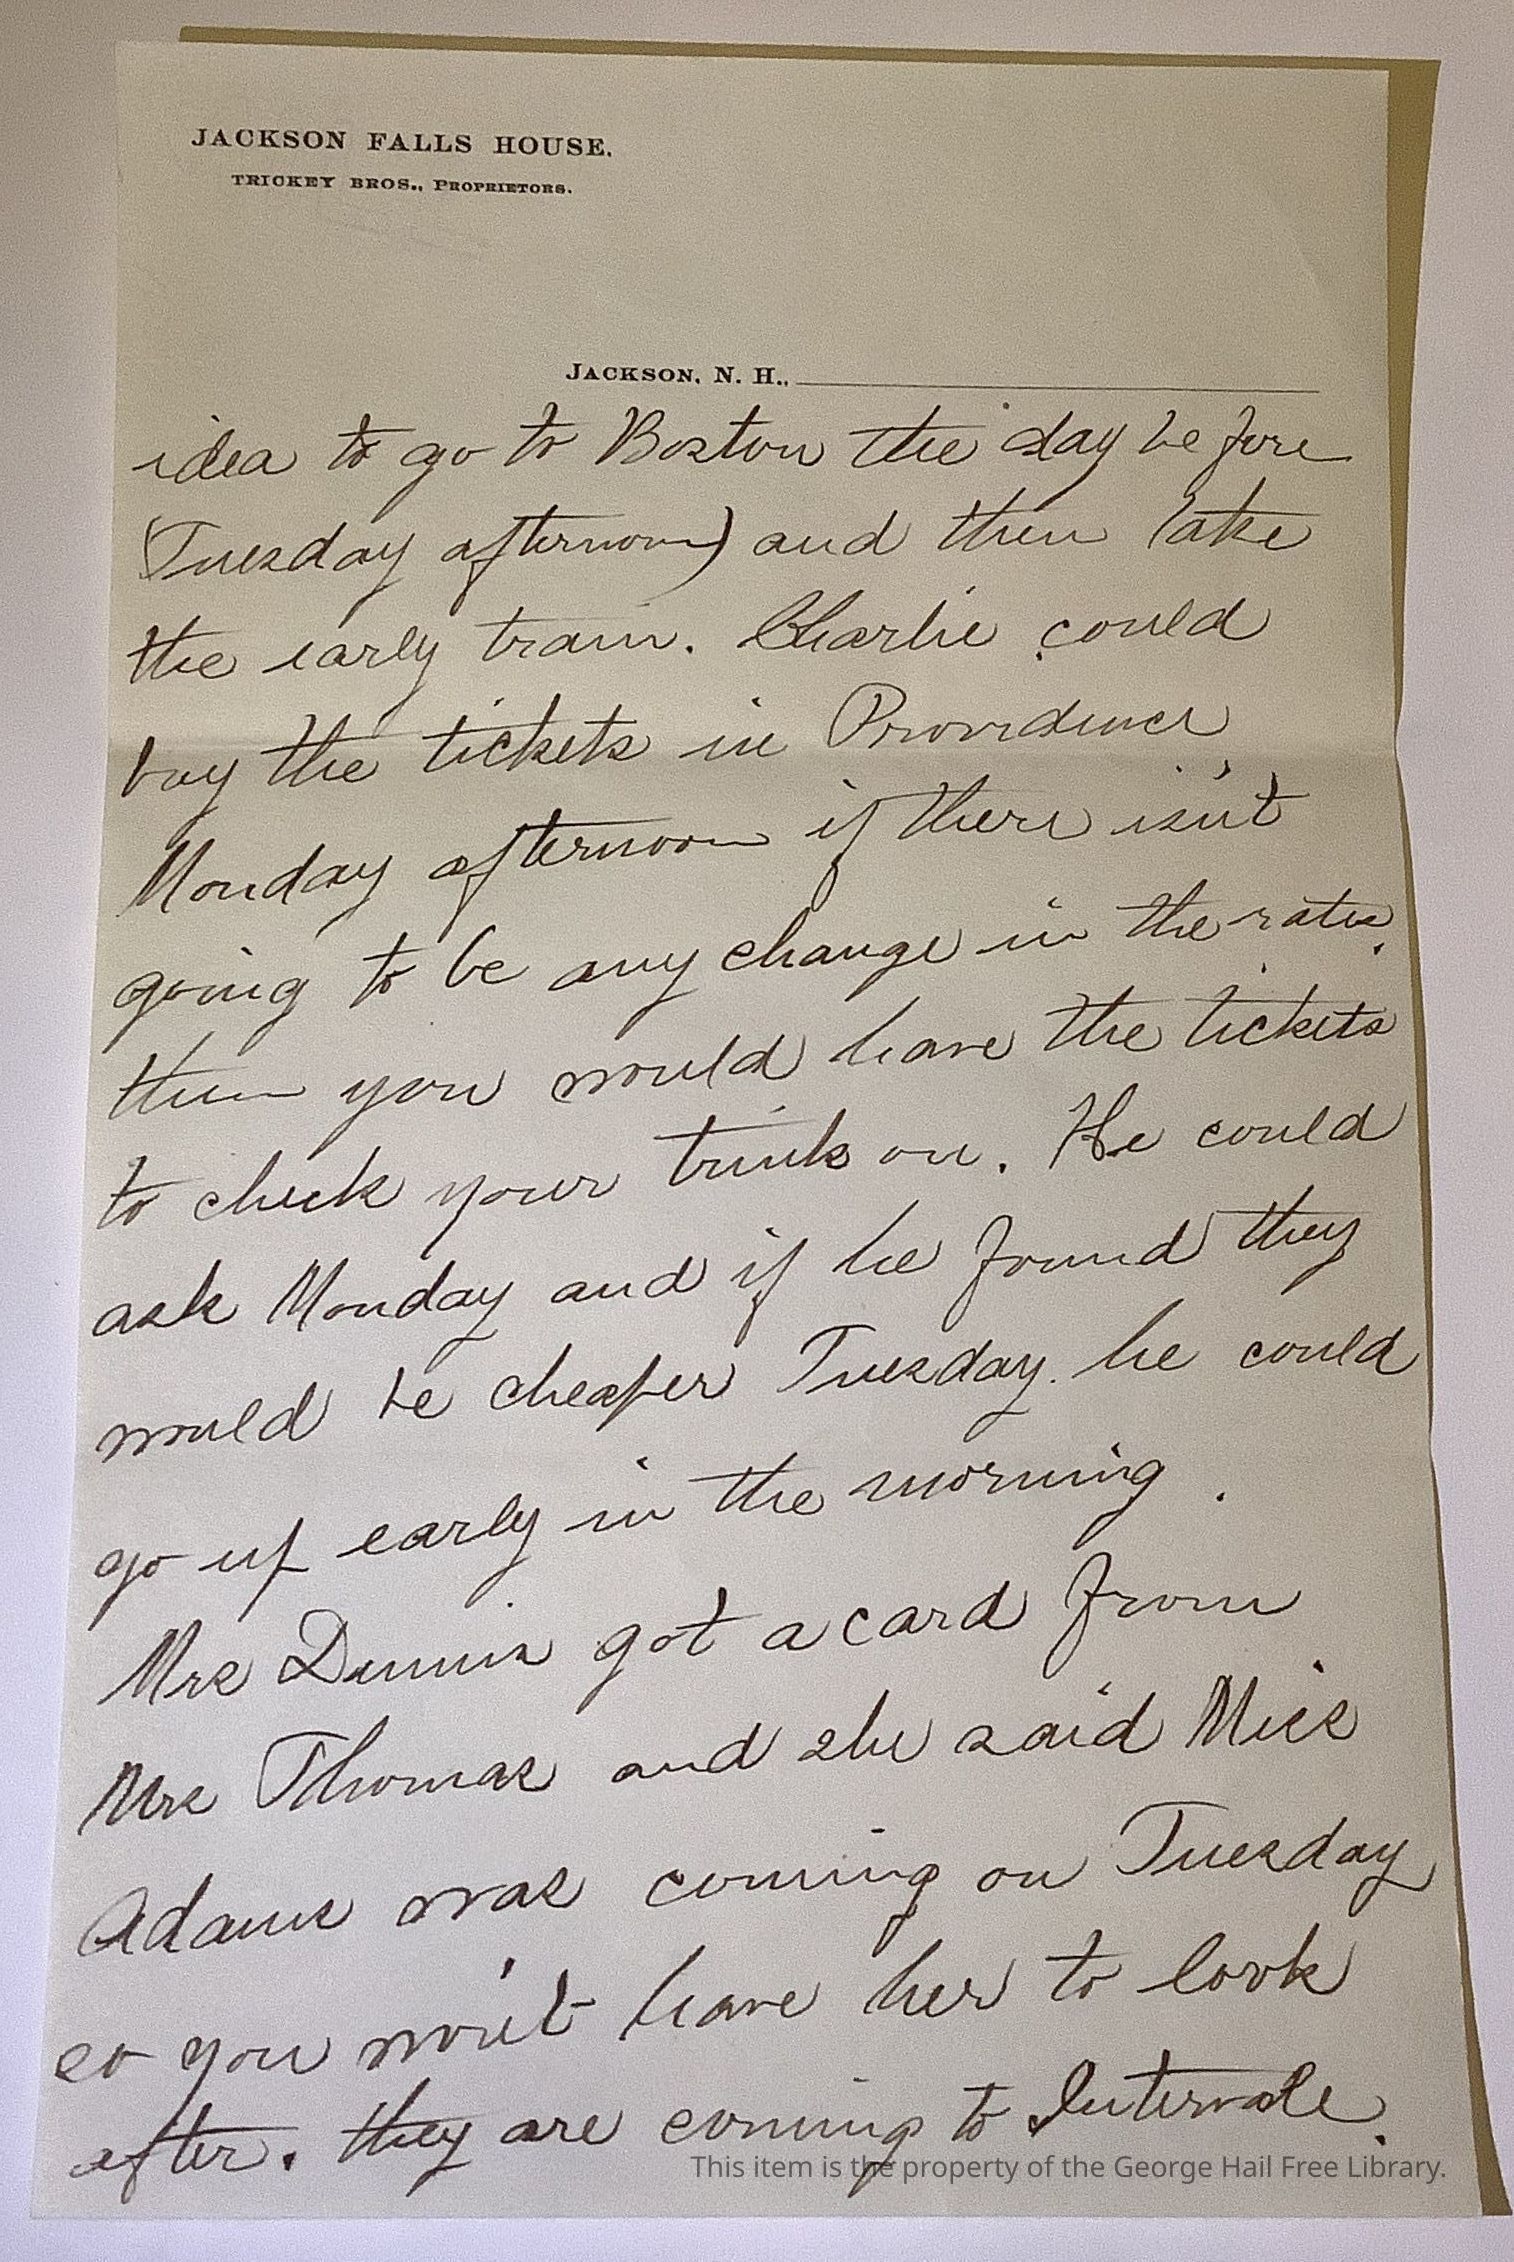 JACKSON FALLS HOUSE.
TRICKEY BROS., PROPRIETORS.
JACKSON, N. H.,
idea to go to Boston the day before
(Tuesday afternoon) and then take
the early train. Charlie could
buy the tickets in Providence
Monday afternoon if there isn't
going to be any change in the rates.
then you would have the tickets
to check your trunk on. He could
ask Monday and if he found they
would be cheaper Tuesday. he could
go up early in the morning.
Mrs Dunnis got a card from
Mrs Thomas and she said Miss
Adams was coming on Tuesday
so you won't have her to look
after. they are coming to Intervale.
This item is the property of the George Hail Free Library.